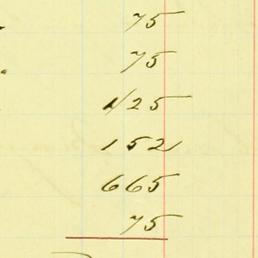 75
75
125
152
665
75